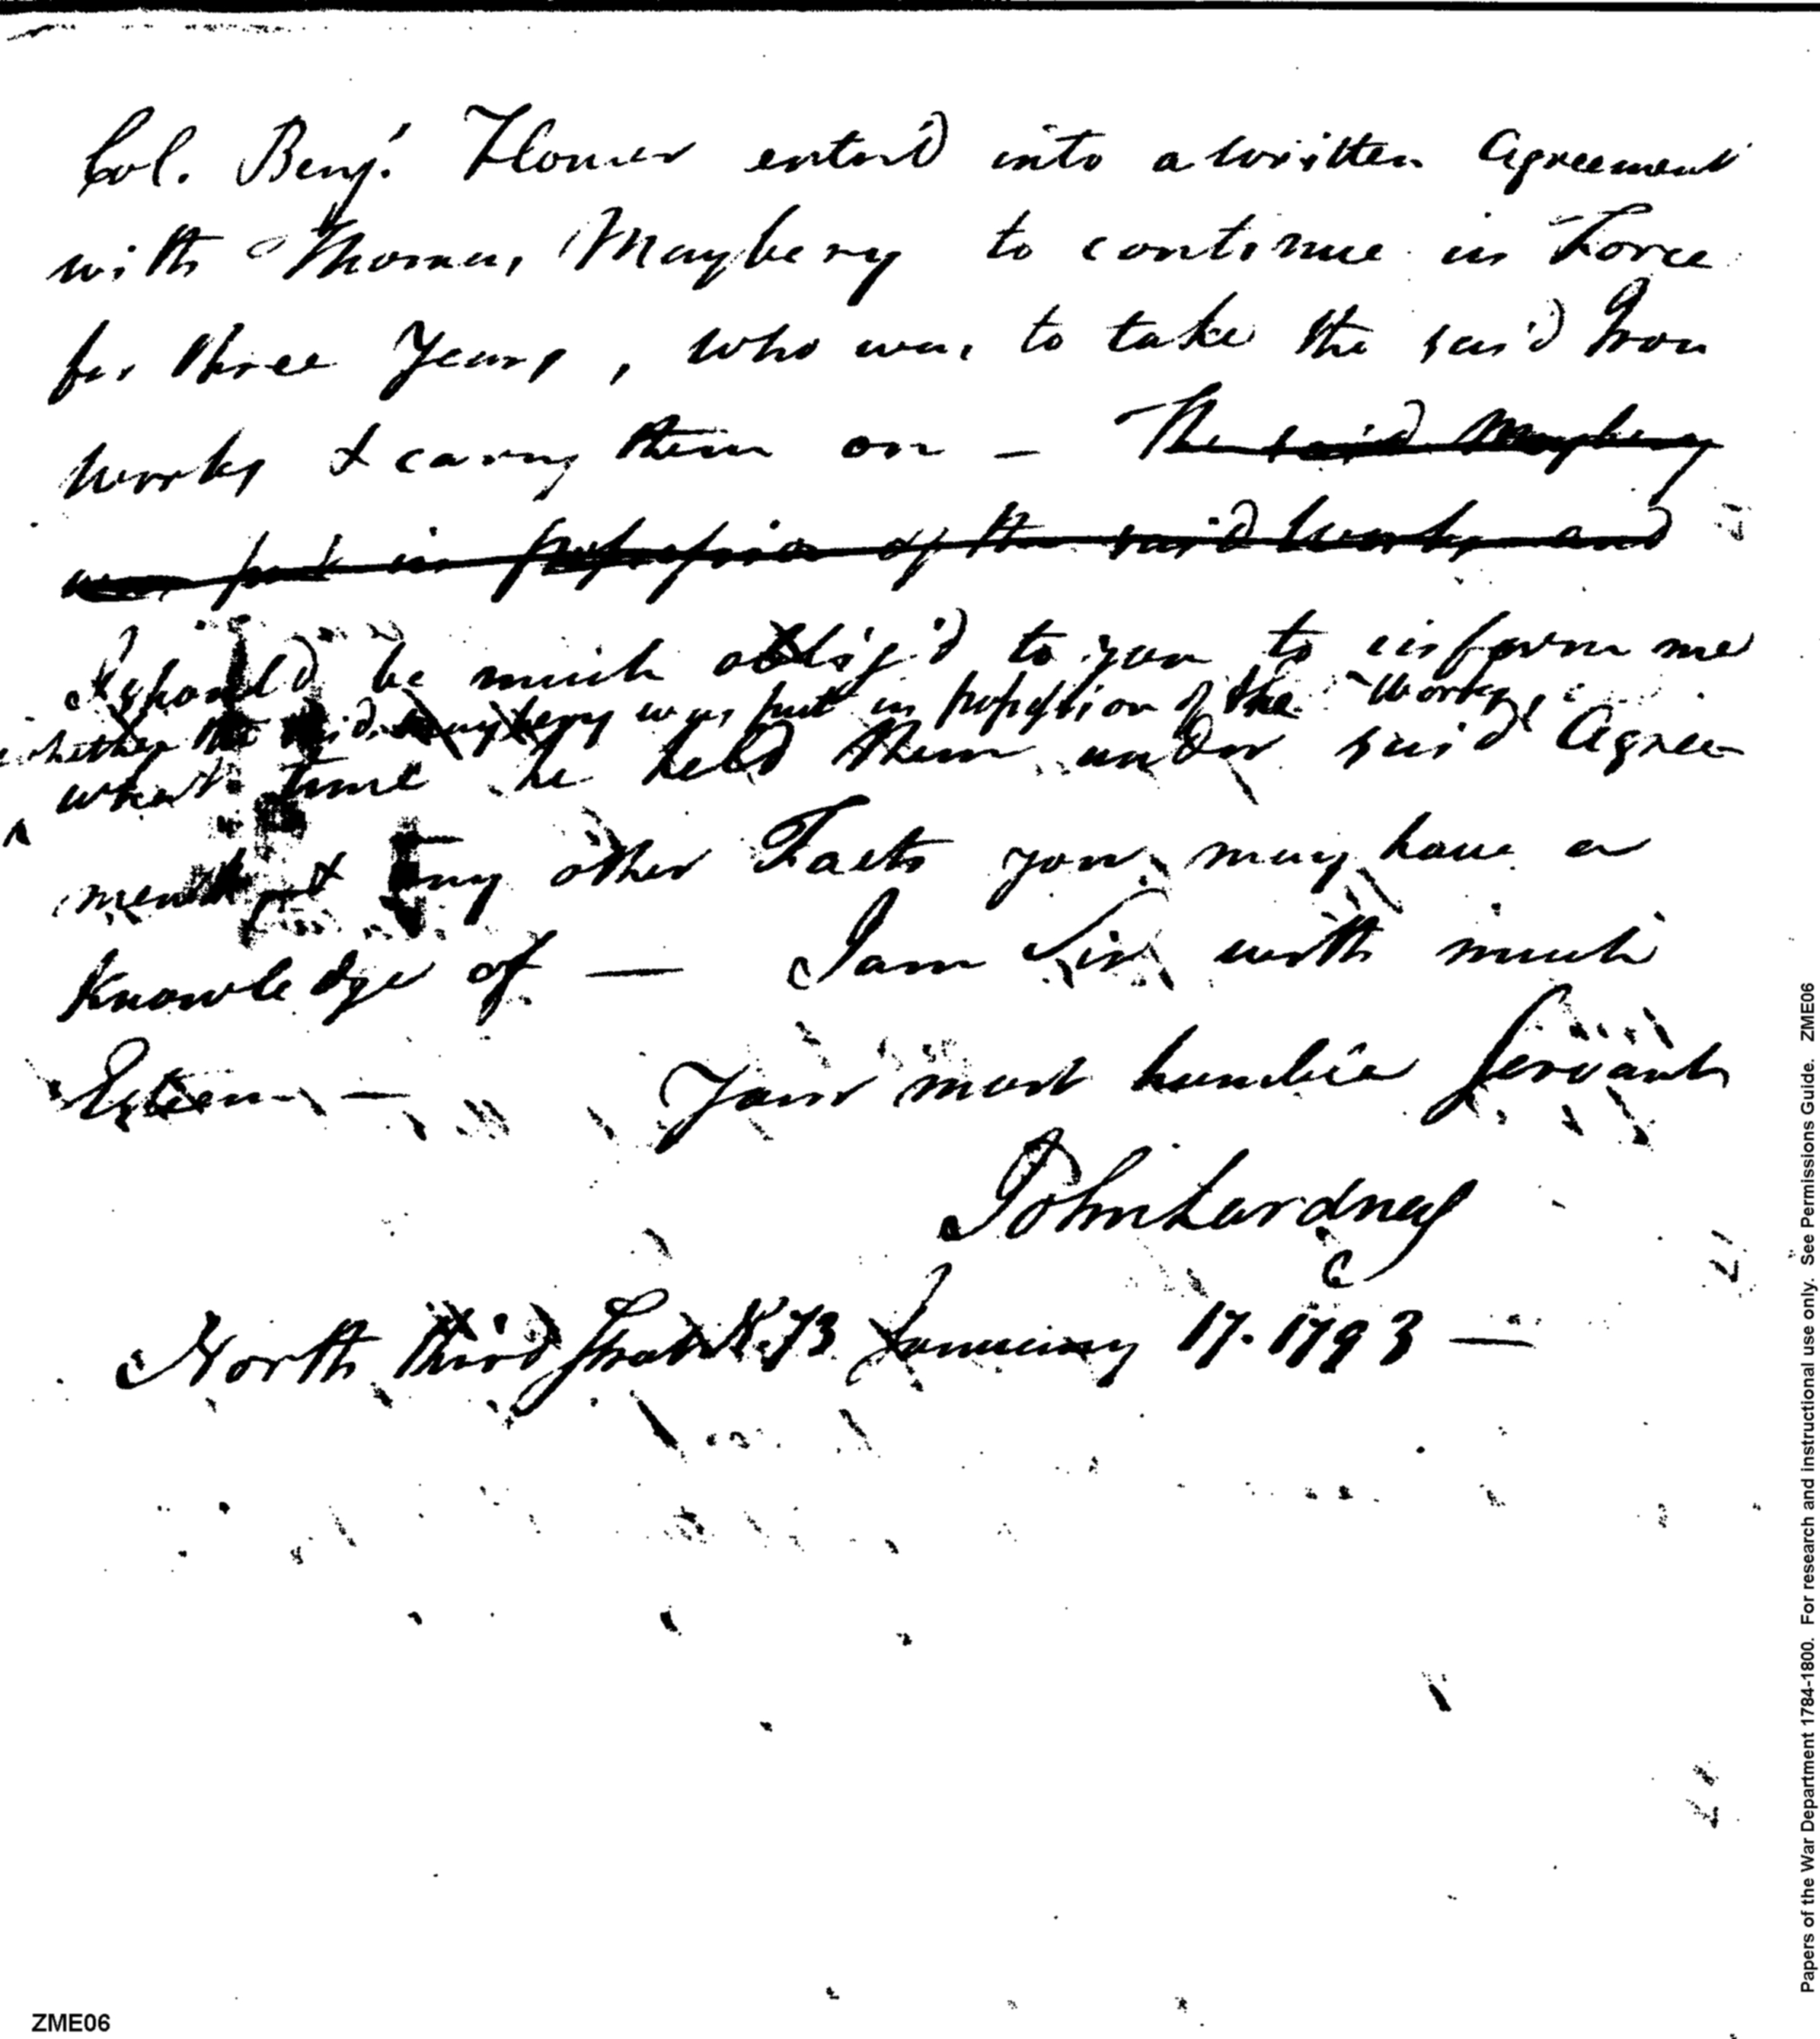 Col. Benj. Flower enter'd into a written Agreement
with Thomas Maybery to continue in Force
for three Years, who was to take the said Iron
Works & carry them on — The said Maybery
was put in possession of the said Works and
I should be much oblig'd to you to inform me
whether the said Maybery was put in possession of the Works &
what time he held them under said Agree
ment & any other Facts you may have a
Knowledge of — I am Sir with much
Esteem — Your most humble Servant
John Lardner
North Third Street N. 73 January 17. 1793 —
Papers of the War Department 1784-1800. For research and instructional use only. See Permissions Guide. ZME06
ZME06